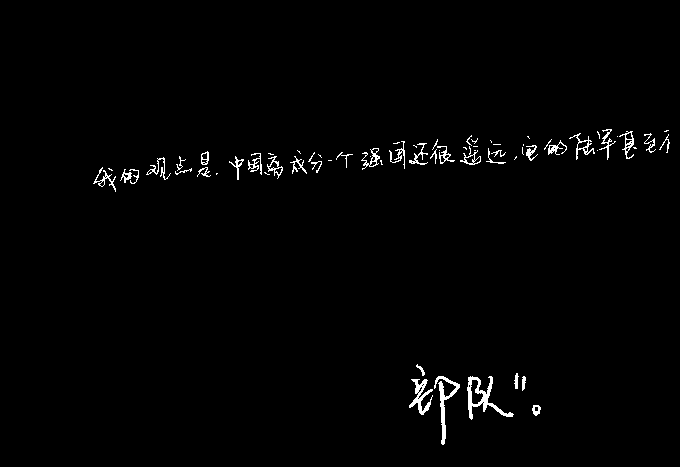 我的观点是,中国离成为一个强国还很遥远,它的陆军甚至
部队"。